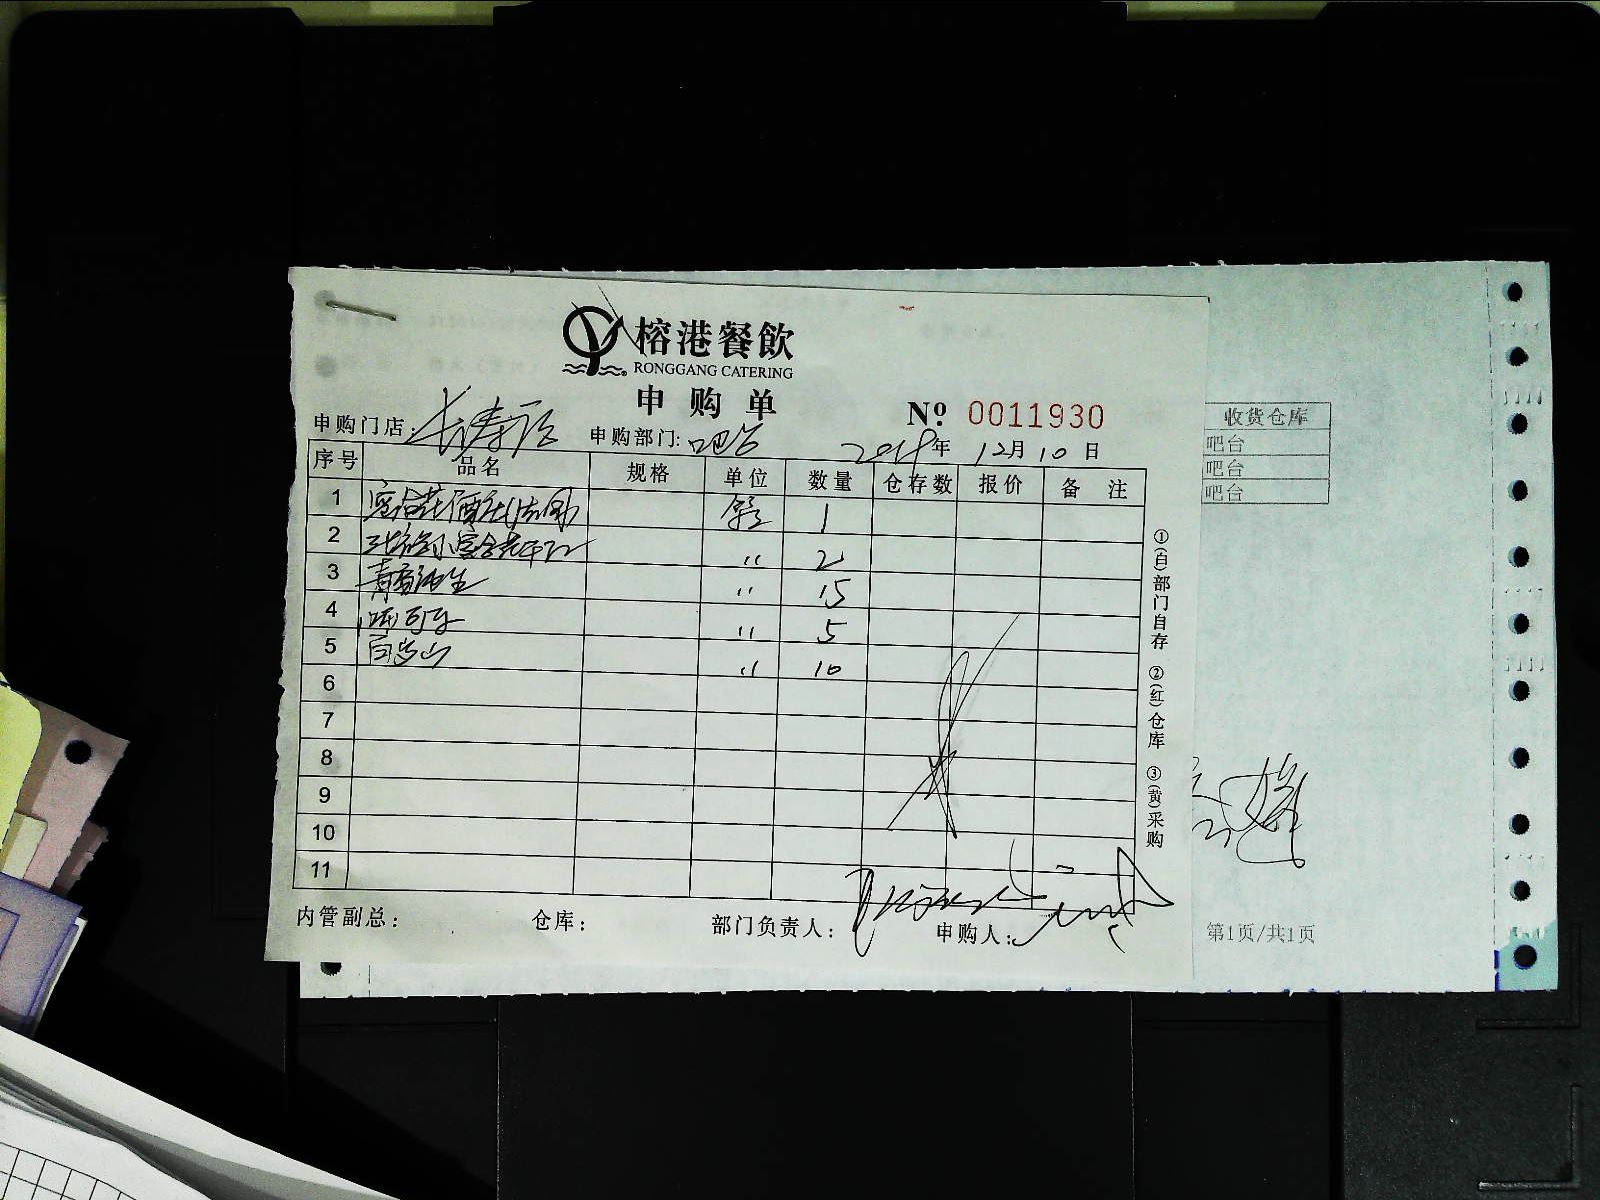 榕港餐飲
RONGGANG CATERING
申购单
申购门店:长寿路 申购部门:吧台 Nº 0011930
2018年12月10日
序号 品名 规格 单位 数量 仓存数 报价 备注
1 1
2 〃 2
3 〃 15
4 〃 5
5 百岁山 〃 10
6
7
8
9
10
11
①(白)部门自存 ②(红)仓库 ③(黄)采购
内管副总: 仓库: 部门负责人: 申购人:
收货仓库
吧台
吧台
吧台
第1页/共1页